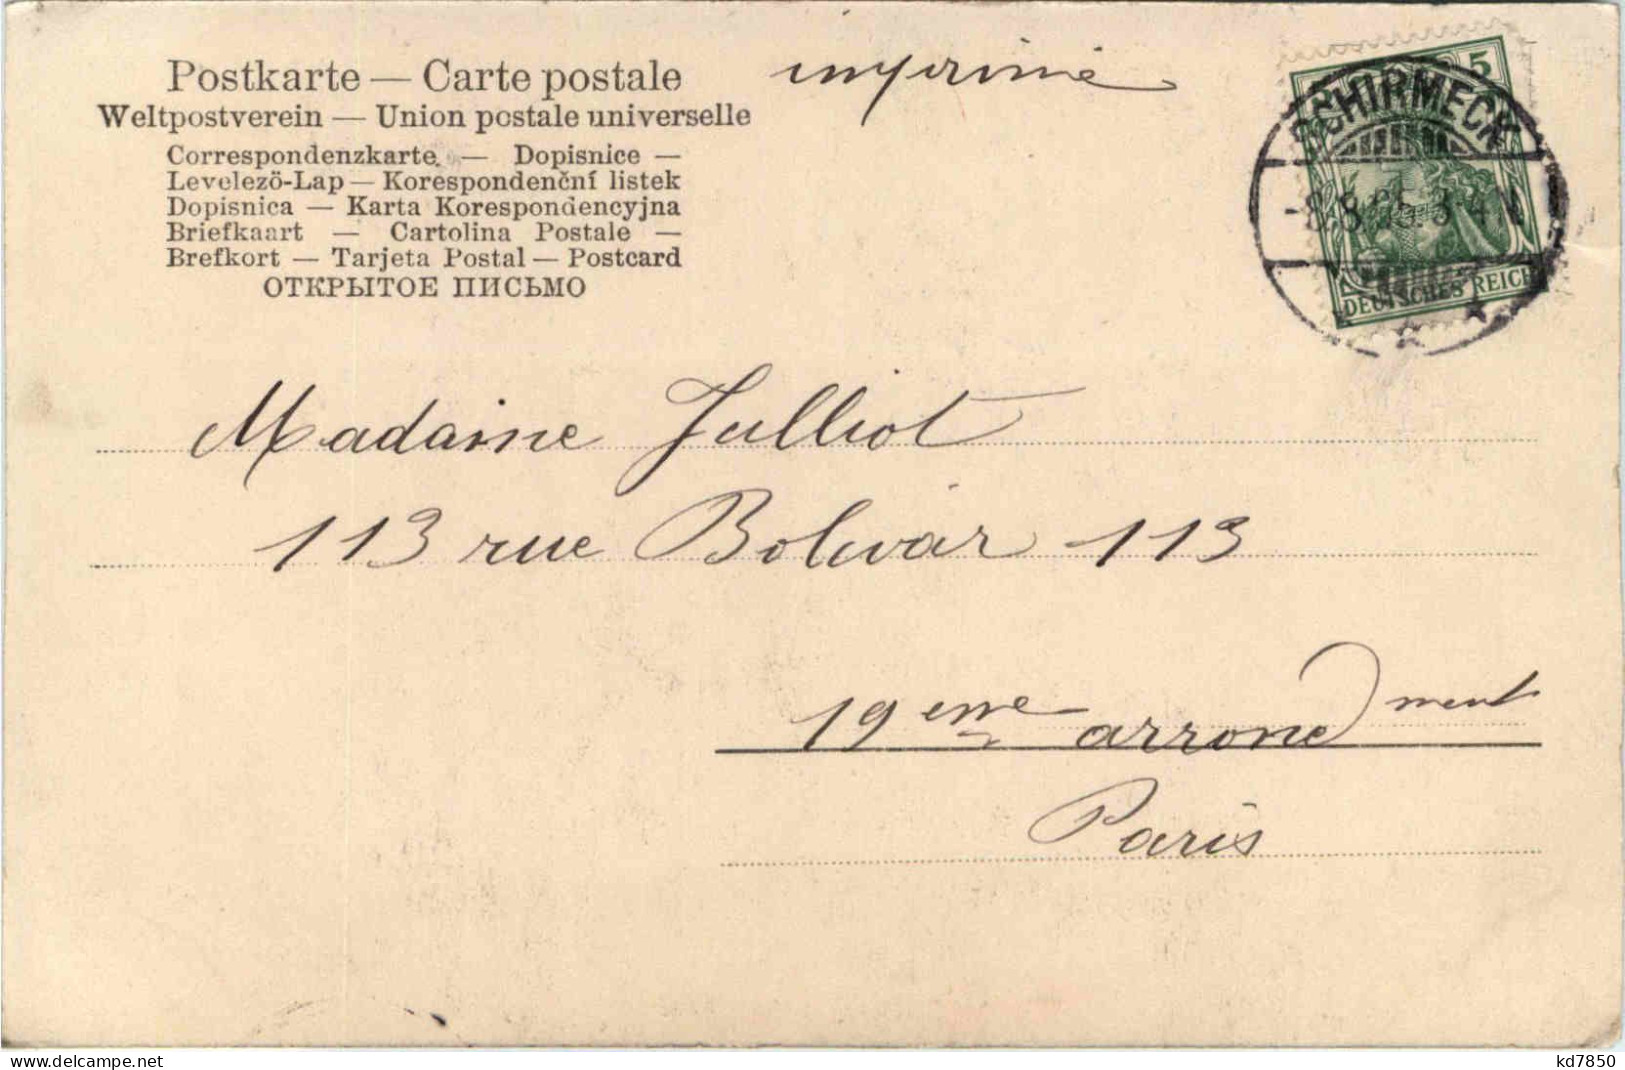 Postkarte — Carte postale
Weltpostverein — Union postale universelle
Correspondenzkarte. — Dopisnice —
Levelezö-Lap — Korespondenční listek
Dopisnica — Karta Korespondencyjna
Briefkaart — Cartolina Postale —
Brefkort — Tarjeta Postal — Postcard
ОТКРЫТОЕ ПИСЬМО
imprimé
5
SCHIRMECK
DEUTSCHES REICH
Madame Julliot
113 rue Bolivar 113
19eme arrondment
Paris
kd7850
delcampe.net